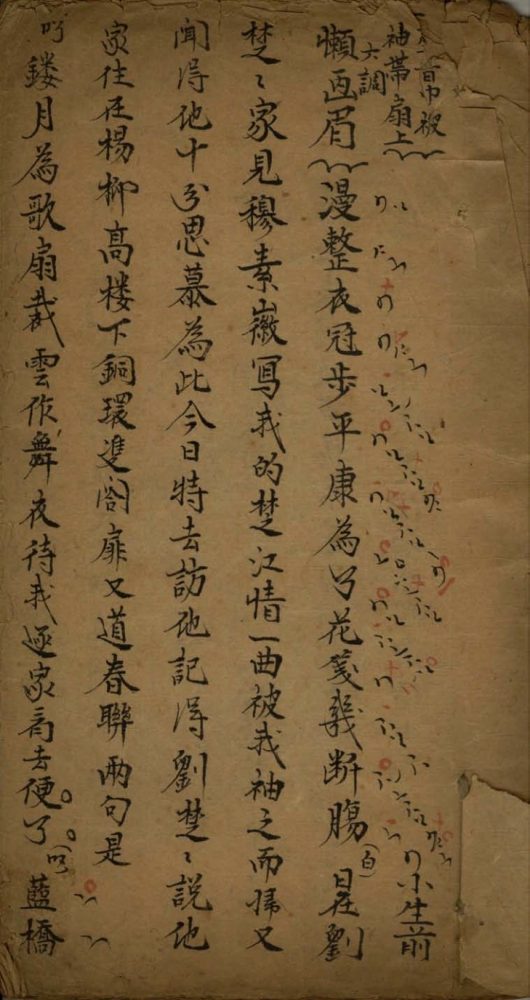 巾服
袖帶扇上
六調
懶画眉 漫整衣冠步平康為了花箋幾断腸 (白) 小生前日在劉
楚〻家見穆素徽寫我的楚江情一曲被我袖之而歸又
聞得他十分思慕為此今日特去訪他記得劉楚〻說他
家住在楊柳高楼下銅環雙閤扉又道春聯兩句是
鏤月為歌扇裁雲作舞衣待我逐家看去便了 藍橋